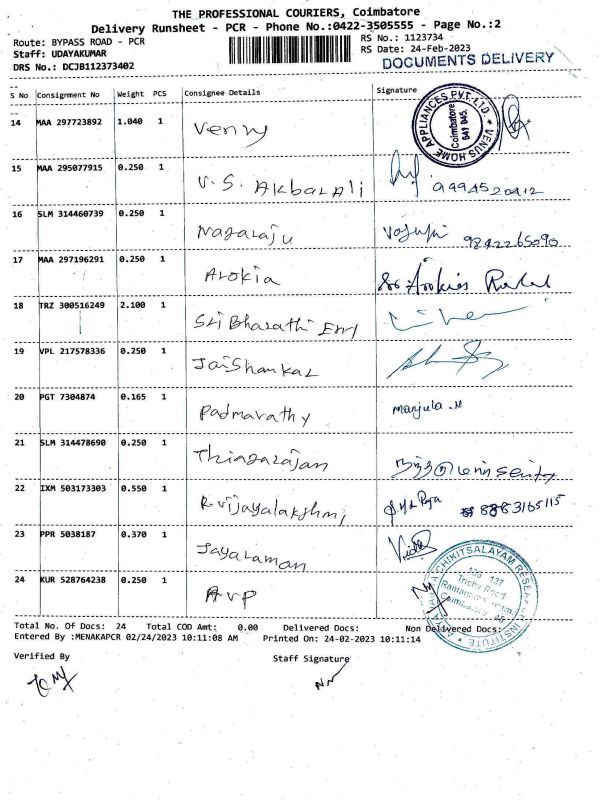 THE PROFESSIONAL COURIERS, Coimbatore
Delivery Runsheet - PCR - Phone No.:0422-3505555 - Page No.:2
Route: BYPASS ROAD - PCR
RS No.: 1123734
Staff: UDAYAKUMAR
RS Date: 24-Feb-2023
DRS No.: DCJB112373402
DOCUMENTS DELIVERY
S No Consignment No Weight PCS Consignee Details Signature
14 MAA 297723892 1.040 1 Venny
VENUS HOME APPLIANCES PVT. LTD. Coimbatore 641 045.
15 MAA 295077915 0.250 1 V.S. Akbar Ali 9994520412
16 SLM 314460739 0.250 1 Nagaraju 9842265090
17 MAA 297196291 0.250 1 Arokia
18 TRZ 300516249 2.100 1 Sri Bharathi Eng
19 VPL 217578336 0.250 1 Jaishankar
20 PGT 7304874 0.165 1 Padmavathy Manjula.M
21 SLM 314478690 0.250 1 Thiagarajan
22 IXM 503173303 0.550 1 R.Vijayalakshmi 8883165115
23 PPR 5038187 0.370 1 Jayaraman
24 KUR 528764238 0.250 1 AVP
Total No. Of Docs: 24 Total COD Amt: 0.00 Delivered Docs: Non Delivered Docs:
Entered By :MENAKAPCR 02/24/2023 10:11:08 AM Printed On: 24-02-2023 10:11:14
Verified By Staff Signature